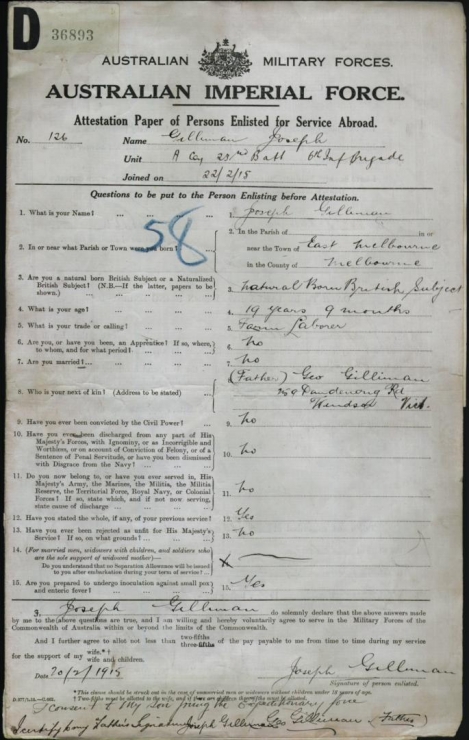 D 36893
AUSTRALIAN MILITARY FORCES.
AUSTRALIAN IMPERIAL FORCE.
Attestation Paper of Persons Enlisted for Service Abroad.
No. 126 Name Gilliman Joseph
Unit A Coy 23rd Batt 6th Inf Brigade
Joined on 22/2/15
Questions to be put to the Person Enlisting before Attestation.
58
1. What is your Name? ... ... ... 1. Joseph Gilliman
2. In or near what Parish or Town were you born? 2. In the Parish of in or
near the Town of East Melbourne
in the County of Melbourne
3. Are you a natural born British Subject or a Naturalized
British Subject? (N.B.—If the latter, papers to be
shown.) ... ... ... 3. Natural Born British Subject
4. What is your age? ... ... ... 4. 19 years 9 months
5. What is your trade or calling? ... ... 5. Farm Laborer
6. Are you, or have you been, an Apprentice? If so, where,
to whom, and for what period? ... ... 6. No
7. Are you married? ... ... 7. No
8. Who is your next of kin? (Address to be stated) 8. (Father) Geo Gilliman
Dandenong Rd
Windsor Vict.
9. Have you ever been convicted by the Civil Power? ... 9. No
10. Have you ever been discharged from any part of His
Majesty's Forces, with Ignominy, or as Incorrigible and
Worthless, or on account of Conviction of Felony, or of a
Sentence of Penal Servitude, or have you been dismissed
with Disgrace from the Navy? ... 10. No
11. Do you now belong to, or have you ever served in, His
Majesty's Army, the Marines, the Militia, the Militia
Reserve, the Territorial Force, Royal Navy, or Colonial
Forces? If so, state which, and if not now serving,
state cause of discharge ... ... 11. No
12. Have you stated the whole, if any, of your previous service? 12. Yes
13. Have you ever been rejected as unfit for His Majesty's
Service? If so, on what grounds? ... ... 13. No
14. (For married men, widowers with children, and soldiers who
are the sole support of widowed mother)—
Do you understand that no Separation Allowance will be issued
to you after embarkation during your term of service?
15. Are you prepared to undergo inoculation against small pox
and enteric fever? ... 15. Yes
I, Joseph Gilliman do solemnly declare that the above answers made
by me to the above questions are true, and I am willing and hereby voluntarily agree to serve in the Military Forces of the
Commonwealth of Australia within or beyond the limits of the Commonwealth.
And I further agree to allot not less than two-fifths three-fifths of the pay payable to me from time to time during my service
for the support of my wife.*† wife and children.
Date 20/2/1915 Joseph Gilliman
Signature of person enlisted.
*This clause should be struck out in the case of unmarried men or widowers without children under 18 years of age.
I consent to my son joing the Expeditionary force
Joseph Gilliman Geo Gilliman (Father)